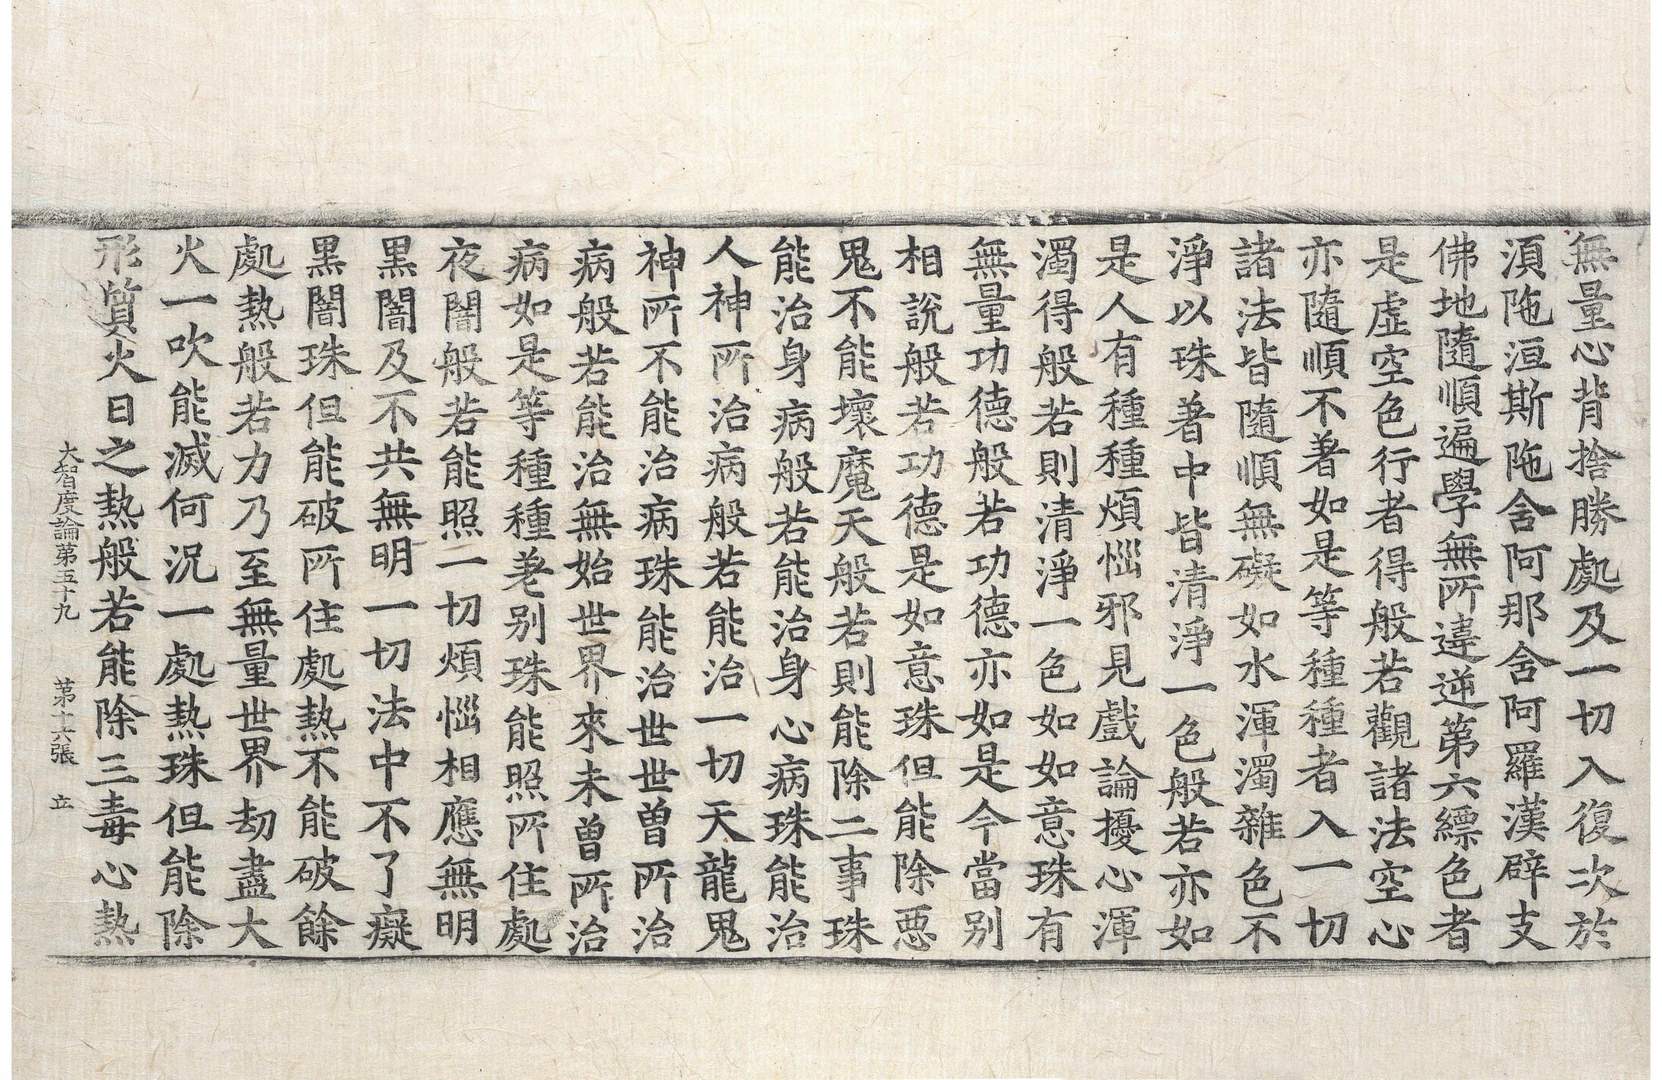 無量心背捨勝處及一切入復次於
湏陁洹斯陁含阿那含阿羅漢辟支
佛地隨順遍學無所違逆第六縹色者
是虛空色行者得般若觀諸法空心
亦隨順不著如是等種種者入一切
諸法皆隨順無礙如水渾濁雜色不
淨以珠著中皆清淨一色般若亦如
是人有種種煩惱邪見戲論擾心渾
濁得般若則清淨一色如如意珠有
無量功德般若功德亦如是今當別
相說般若功德是如意珠但能除惡
鬼不能壞魔天般若則能除二事珠
能治身病般若能治身心病珠能治
人神所治病般若能治一切天龍鬼
神所不能治病珠能治世世曾所治
病般若能治無始世界來未曾所治
病如是等種種差別珠能照所住處
夜闇般若能照一切煩惱相應無明
黑闇及不共無明一切法中不了癡
黑闇珠但能破所住處熱不能破餘
處熱般若力乃至無量世界劫盡大
火一吹能滅何況一處熱珠但能除
形質火日之熱般若能除三毒心熱
大智度論第五十九　第十六張　立